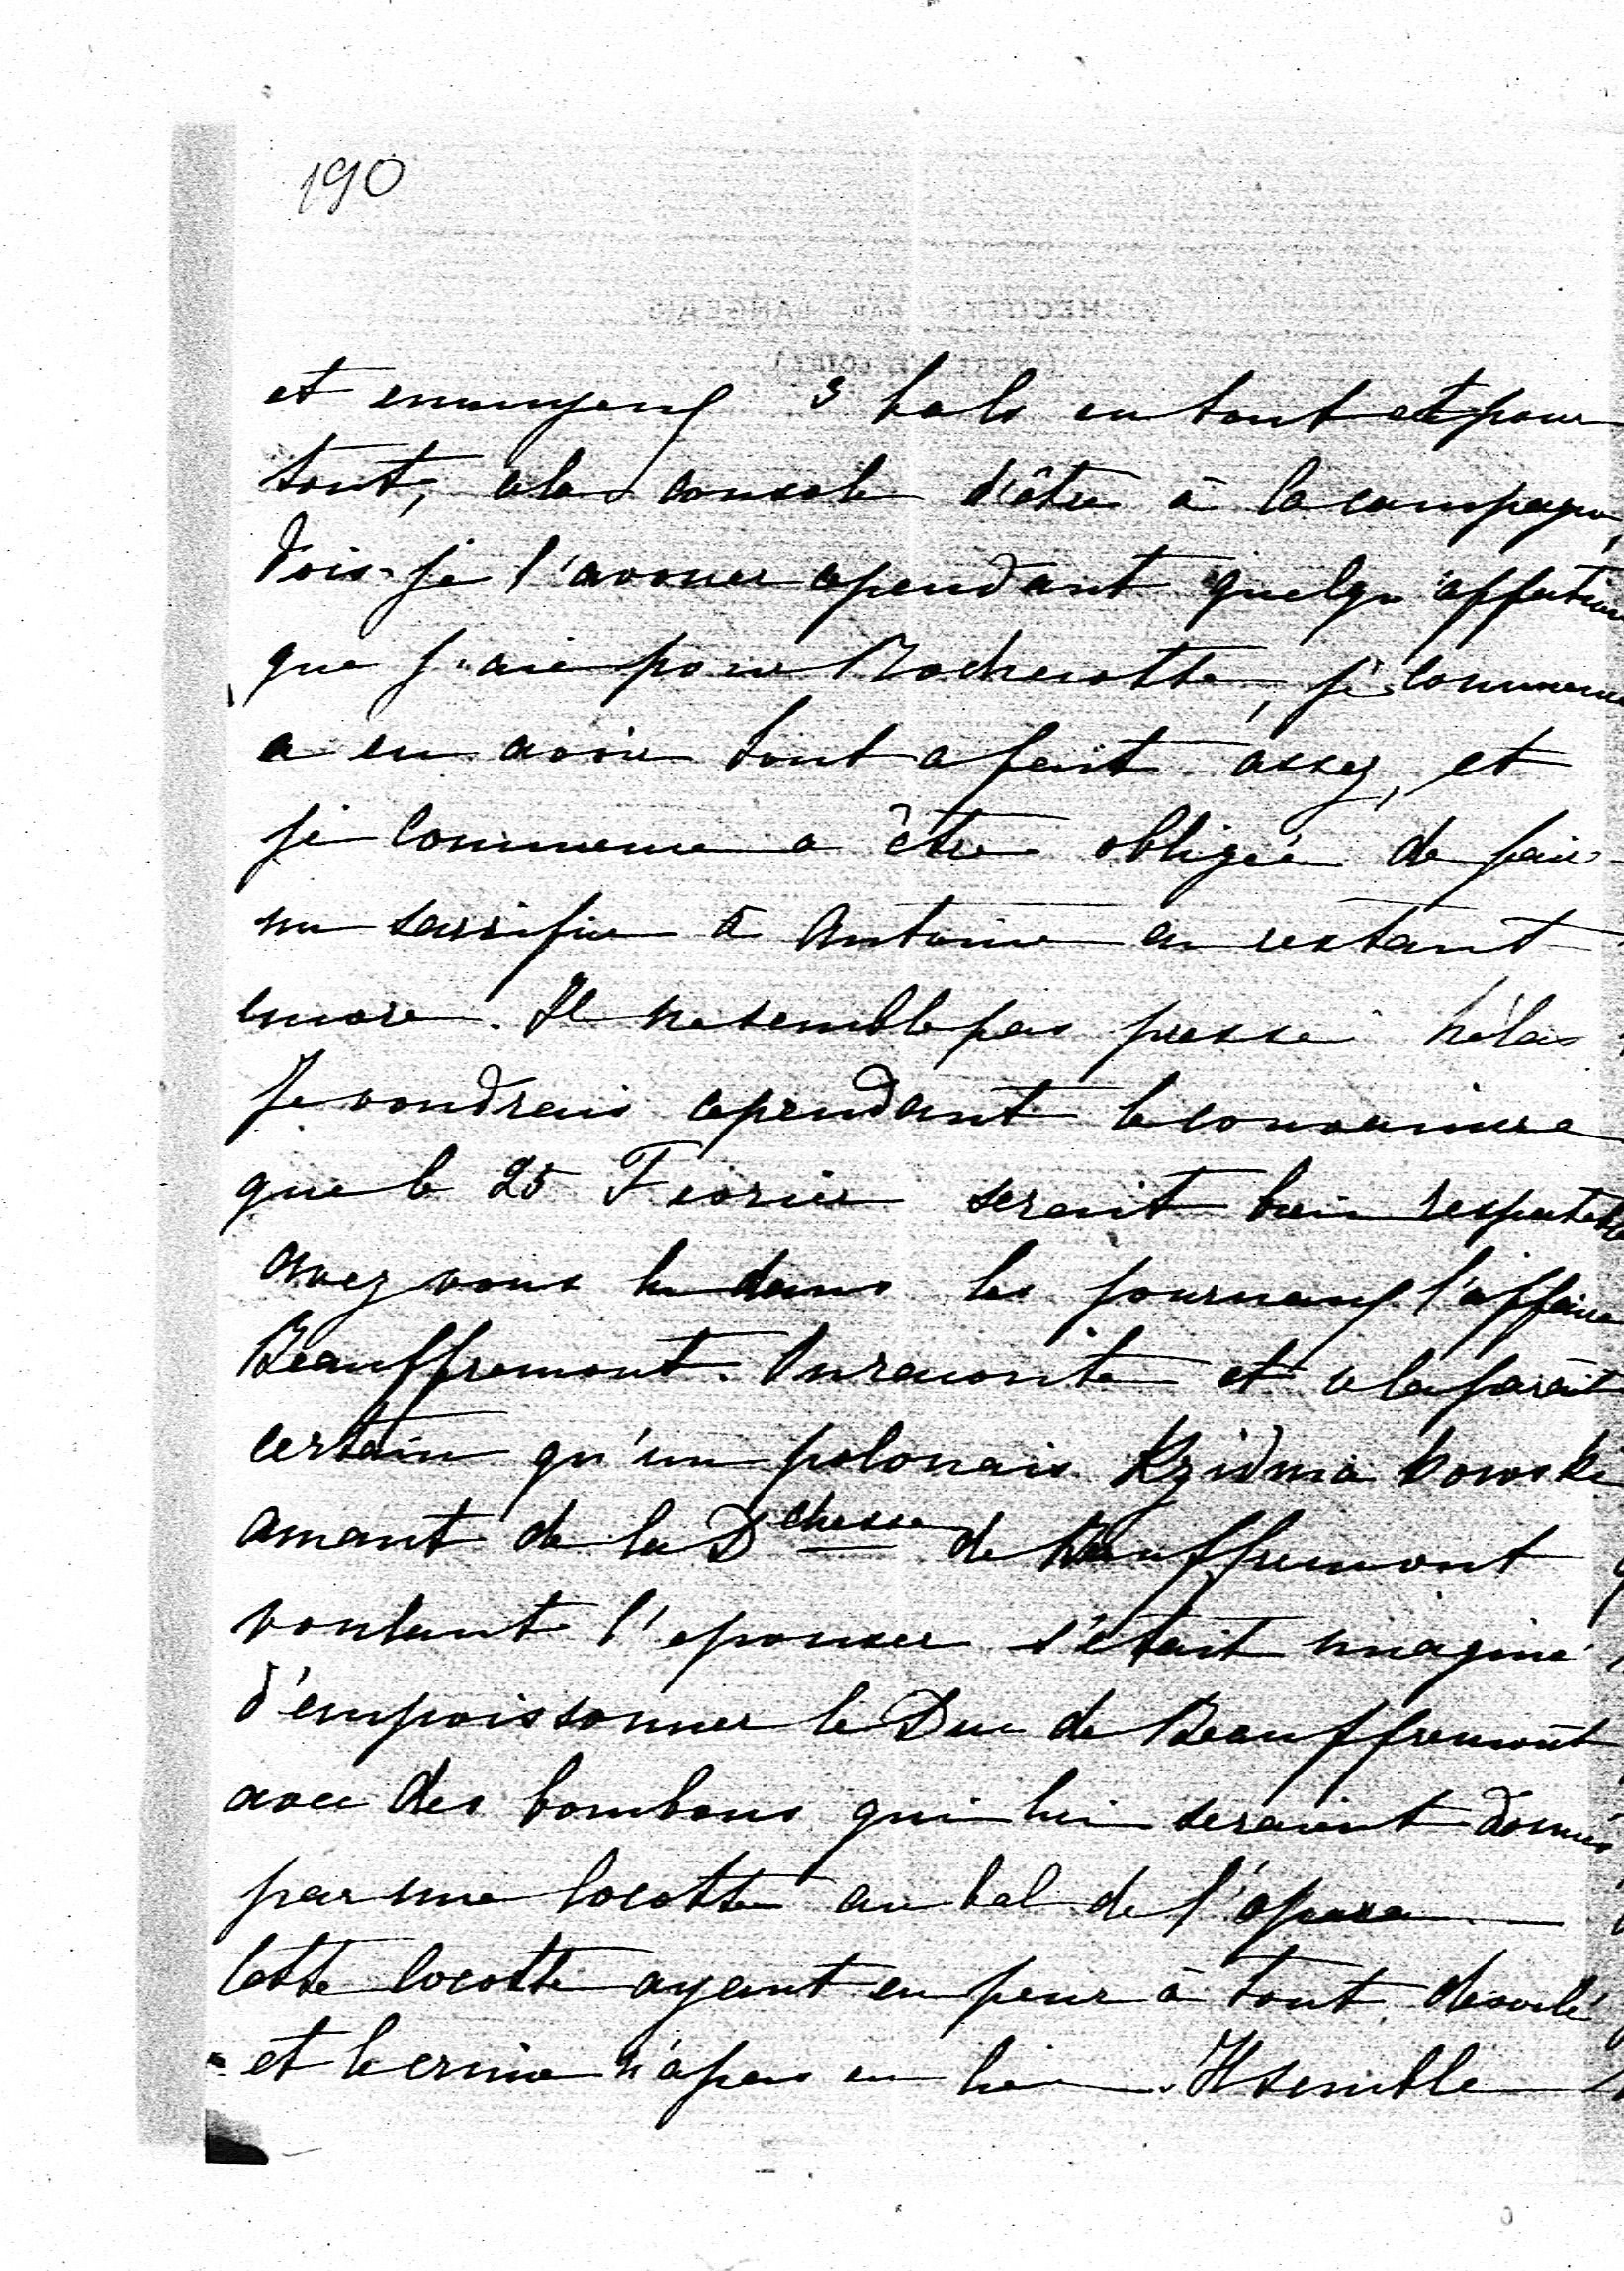 190
et ennuyeux 3 bals en tout et pour
tout, cela console d'être à la campagne,
Dois-je l'avouer cependant quelqu'affection
que j'aie pour Rochecotte, je commence
a en avoir tout a fait assez, et
je commence a être obligée de faire
un sacrifice à Antoine en restant
encore. Il ne semble pas pressé hélas
Je voudrais cependant le convaincre
que le 25 Fevrier serait bien
avez vous lu dans les journaux l'affaire
Beauffremont. On raconte et cela parait
certain qu'un polonais
amant de la Dchesse de Beauffremont
voulant l'epouser s'était imaginé
d'empoissonner le Duc de Beauffremont
avec des bombons qui lui seraient donnés
par une cocotte au bal de l'opera
Cette cocotte ayant eu peur à tout devoilé
et le crime n'a pas eu lieu. Il semble